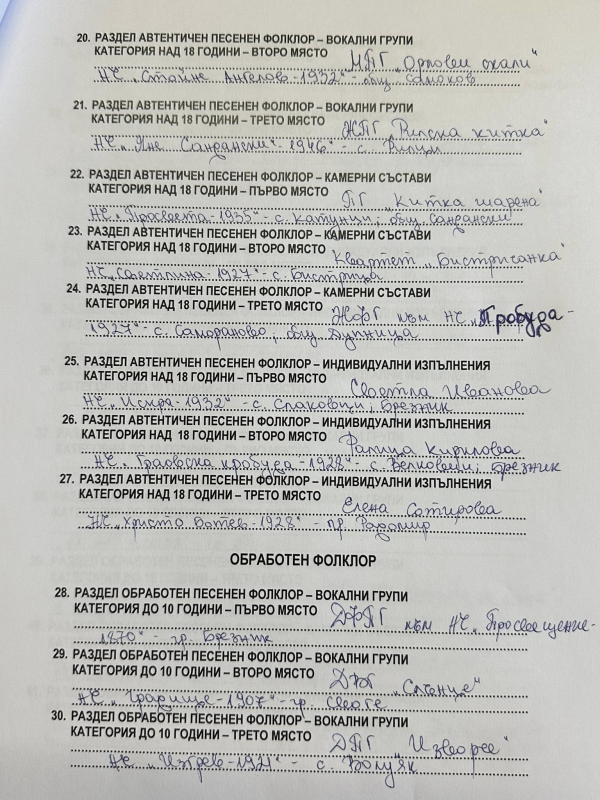 20. РАЗДЕЛ АВТЕНТИЧЕН ПЕСЕНЕН ФОЛКЛОР – ВОКАЛНИ ГРУПИ
КАТЕГОРИЯ НАД 18 ГОДИНИ – ВТОРО МЯСТО МПГ „Орловеи скали"
НЧ „Стайне Ангелов-1932"- общ. Самоков
21. РАЗДЕЛ АВТЕНТИЧЕН ПЕСЕНЕН ФОЛКЛОР – ВОКАЛНИ ГРУПИ
КАТЕГОРИЯ НАД 18 ГОДИНИ – ТРЕТО МЯСТО ЖПГ „Рилска китка"
НЧ „Яне Сандански-1946"- с.
22. РАЗДЕЛ АВТЕНТИЧЕН ПЕСЕНЕН ФОЛКЛОР – КАМЕРНИ СЪСТАВИ
КАТЕГОРИЯ НАД 18 ГОДИНИ – ПЪРВО МЯСТО ПГ „Китка шарена"
НЧ „Просвета-1935"- с. Катунци, общ. Сандански
23. РАЗДЕЛ АВТЕНТИЧЕН ПЕСЕНЕН ФОЛКЛОР – КАМЕРНИ СЪСТАВИ
КАТЕГОРИЯ НАД 18 ГОДИНИ – ВТОРО МЯСТО Квартет „Бистричанка"
НЧ „Светлина-1927"- с. Бистрица
24. РАЗДЕЛ АВТЕНТИЧЕН ПЕСЕНЕН ФОЛКЛОР – КАМЕРНИ СЪСТАВИ
КАТЕГОРИЯ НАД 18 ГОДИНИ – ТРЕТО МЯСТО ЖФГ към НЧ „Пробуда-
1927"- с. Самораново, общ. Дупница
25. РАЗДЕЛ АВТЕНТИЧЕН ПЕСЕНЕН ФОЛКЛОР – ИНДИВИДУАЛНИ ИЗПЪЛНЕНИЯ
КАТЕГОРИЯ НАД 18 ГОДИНИ – ПЪРВО МЯСТО Светла Иванова
НЧ „Искра-1932"- с. Слаковци, Брезник
26. РАЗДЕЛ АВТЕНТИЧЕН ПЕСЕНЕН ФОЛКЛОР – ИНДИВИДУАЛНИ ИЗПЪЛНЕНИЯ
КАТЕГОРИЯ НАД 18 ГОДИНИ – ВТОРО МЯСТО Кирилова
НЧ „Граовска пробуда-1928"- с. Велковци, Брезник
27. РАЗДЕЛ АВТЕНТИЧЕН ПЕСЕНЕН ФОЛКЛОР – ИНДИВИДУАЛНИ ИЗПЪЛНЕНИЯ
КАТЕГОРИЯ НАД 18 ГОДИНИ – ТРЕТО МЯСТО Елена Сотирова
НЧ „Христо Ботев-1928" - гр. Радомир
ОБРАБОТЕН ФОЛКЛОР
28. РАЗДЕЛ ОБРАБОТЕН ПЕСЕНЕН ФОЛКЛОР – ВОКАЛНИ ГРУПИ
КАТЕГОРИЯ ДО 10 ГОДИНИ – ПЪРВО МЯСТО ДФПГ към НЧ „Просвещение-
1870"- гр. Брезник
29. РАЗДЕЛ ОБРАБОТЕН ПЕСЕНЕН ФОЛКЛОР – ВОКАЛНИ ГРУПИ
КАТЕГОРИЯ ДО 10 ГОДИНИ – ВТОРО МЯСТО ДВГ „Слънце"
НЧ „Градище-1907"- гр. Своге
30. РАЗДЕЛ ОБРАБОТЕН ПЕСЕНЕН ФОЛКЛОР – ВОКАЛНИ ГРУПИ
КАТЕГОРИЯ ДО 10 ГОДИНИ – ТРЕТО МЯСТО ДПГ „Изворче"
НЧ „Изгрев-1921"- с. Волуяк